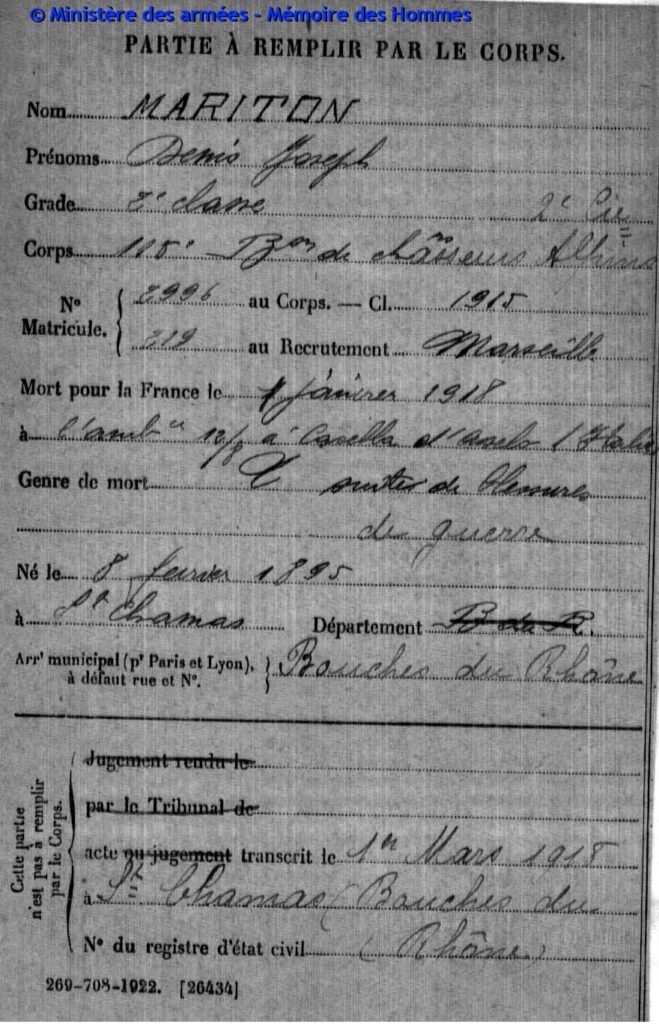 © Ministère des armées - Mémoire des Hommes
PARTIE À REMPLIR PAR LE CORPS.
Nom MARITON
Prénoms Denis Joseph
Grade 2e classe 2e Cie
Corps 115e Bon de chasseurs Alpins
No Matricule. { 2996 au Corps. — Cl. 1915
219 au Recrutement Marseille
Mort pour la France le 1 janvier 1918
à l'ambce 12/8 à Casella d'Asolo Italie
Genre de mort suites de blessures
de guerre
Né le 8 février 1895
à St Chamas Département B du R.
Arrt municipal (pr Paris et Lyon), à défaut rue et No. } Bouches du Rhône
Cette partie n'est pas à remplir par le Corps.
Jugement rendu le
par le Tribunal de
acte ou jugement transcrit le 1er Mars 1918
à St Chamas (Bouches du
No du registre d'état civil Rhône)
269-708-1922. [26434]